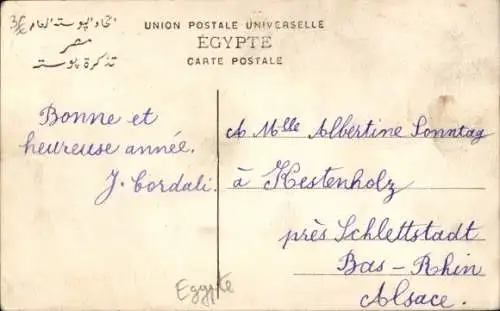 اتحاد البوستة العام
مصر
تذكرة بوستة
UNION POSTALE UNIVERSELLE
ÉGYPTE
CARTE POSTALE
Bonne et
heureuse année.
J. Cordali.
A Mlle Albertine Sonntag
à Kestenholz
près Schlettstadt
Bas-Rhin
Alsace.
Egypte